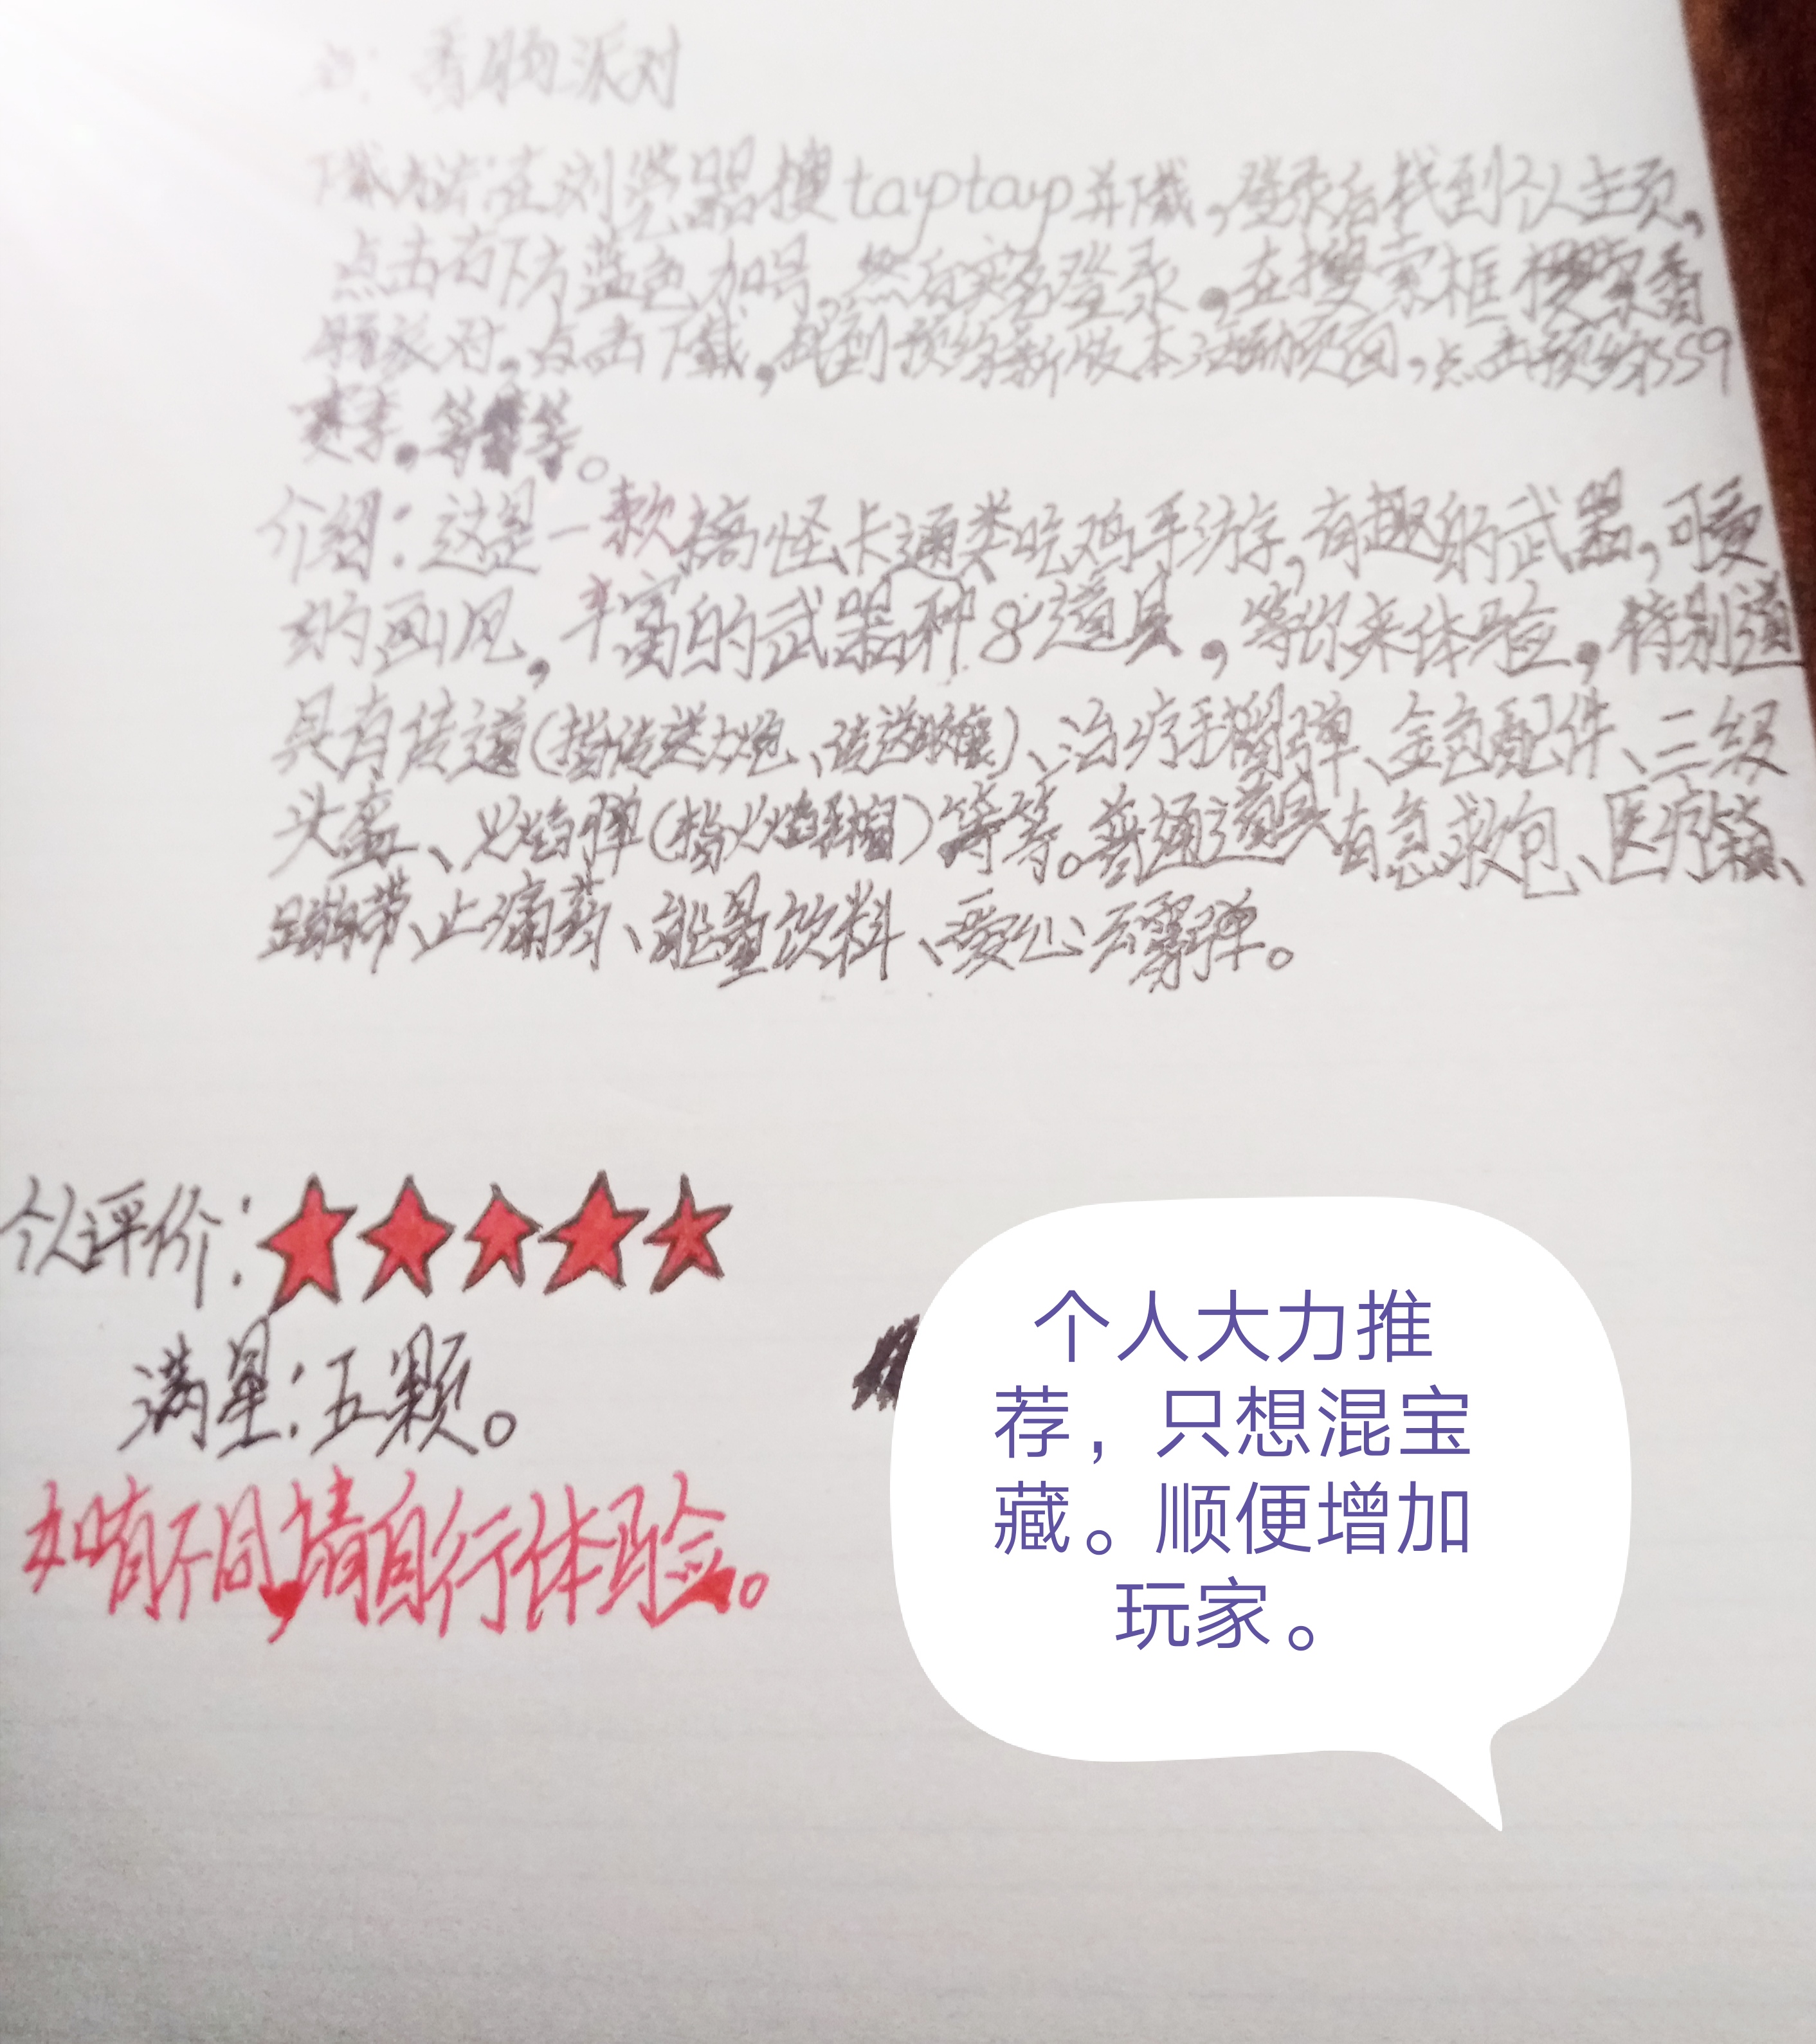 香肠派对
下载方法:在浏览器搜taptap并下载,登录后找到个人主页,
点击右下方蓝色加号,然后实名登录,在搜索框搜索香
肠派对,点击下载,找到预约新版本活动页面,点击预约SS9
赛季,等等。
介绍:这是一款搞怪卡通类吃鸡手游,有趣的武器,可爱
的画风,丰富的武器种&道具,等你来体验,特别道
具有传道(指传送大炮、传送胶囊)、治疗手榴弹、金色配件、三级
头盔、火焰弹(指火焰手榴)等等。普通道具有急救包、医疗箱、
绷带、止痛药、能量饮料、爱心云雾弹。
个人评价:
满星:五颗。
如有不同,请自行体验。
个人大力推
荐，只想混宝
藏。顺便增加
玩家。